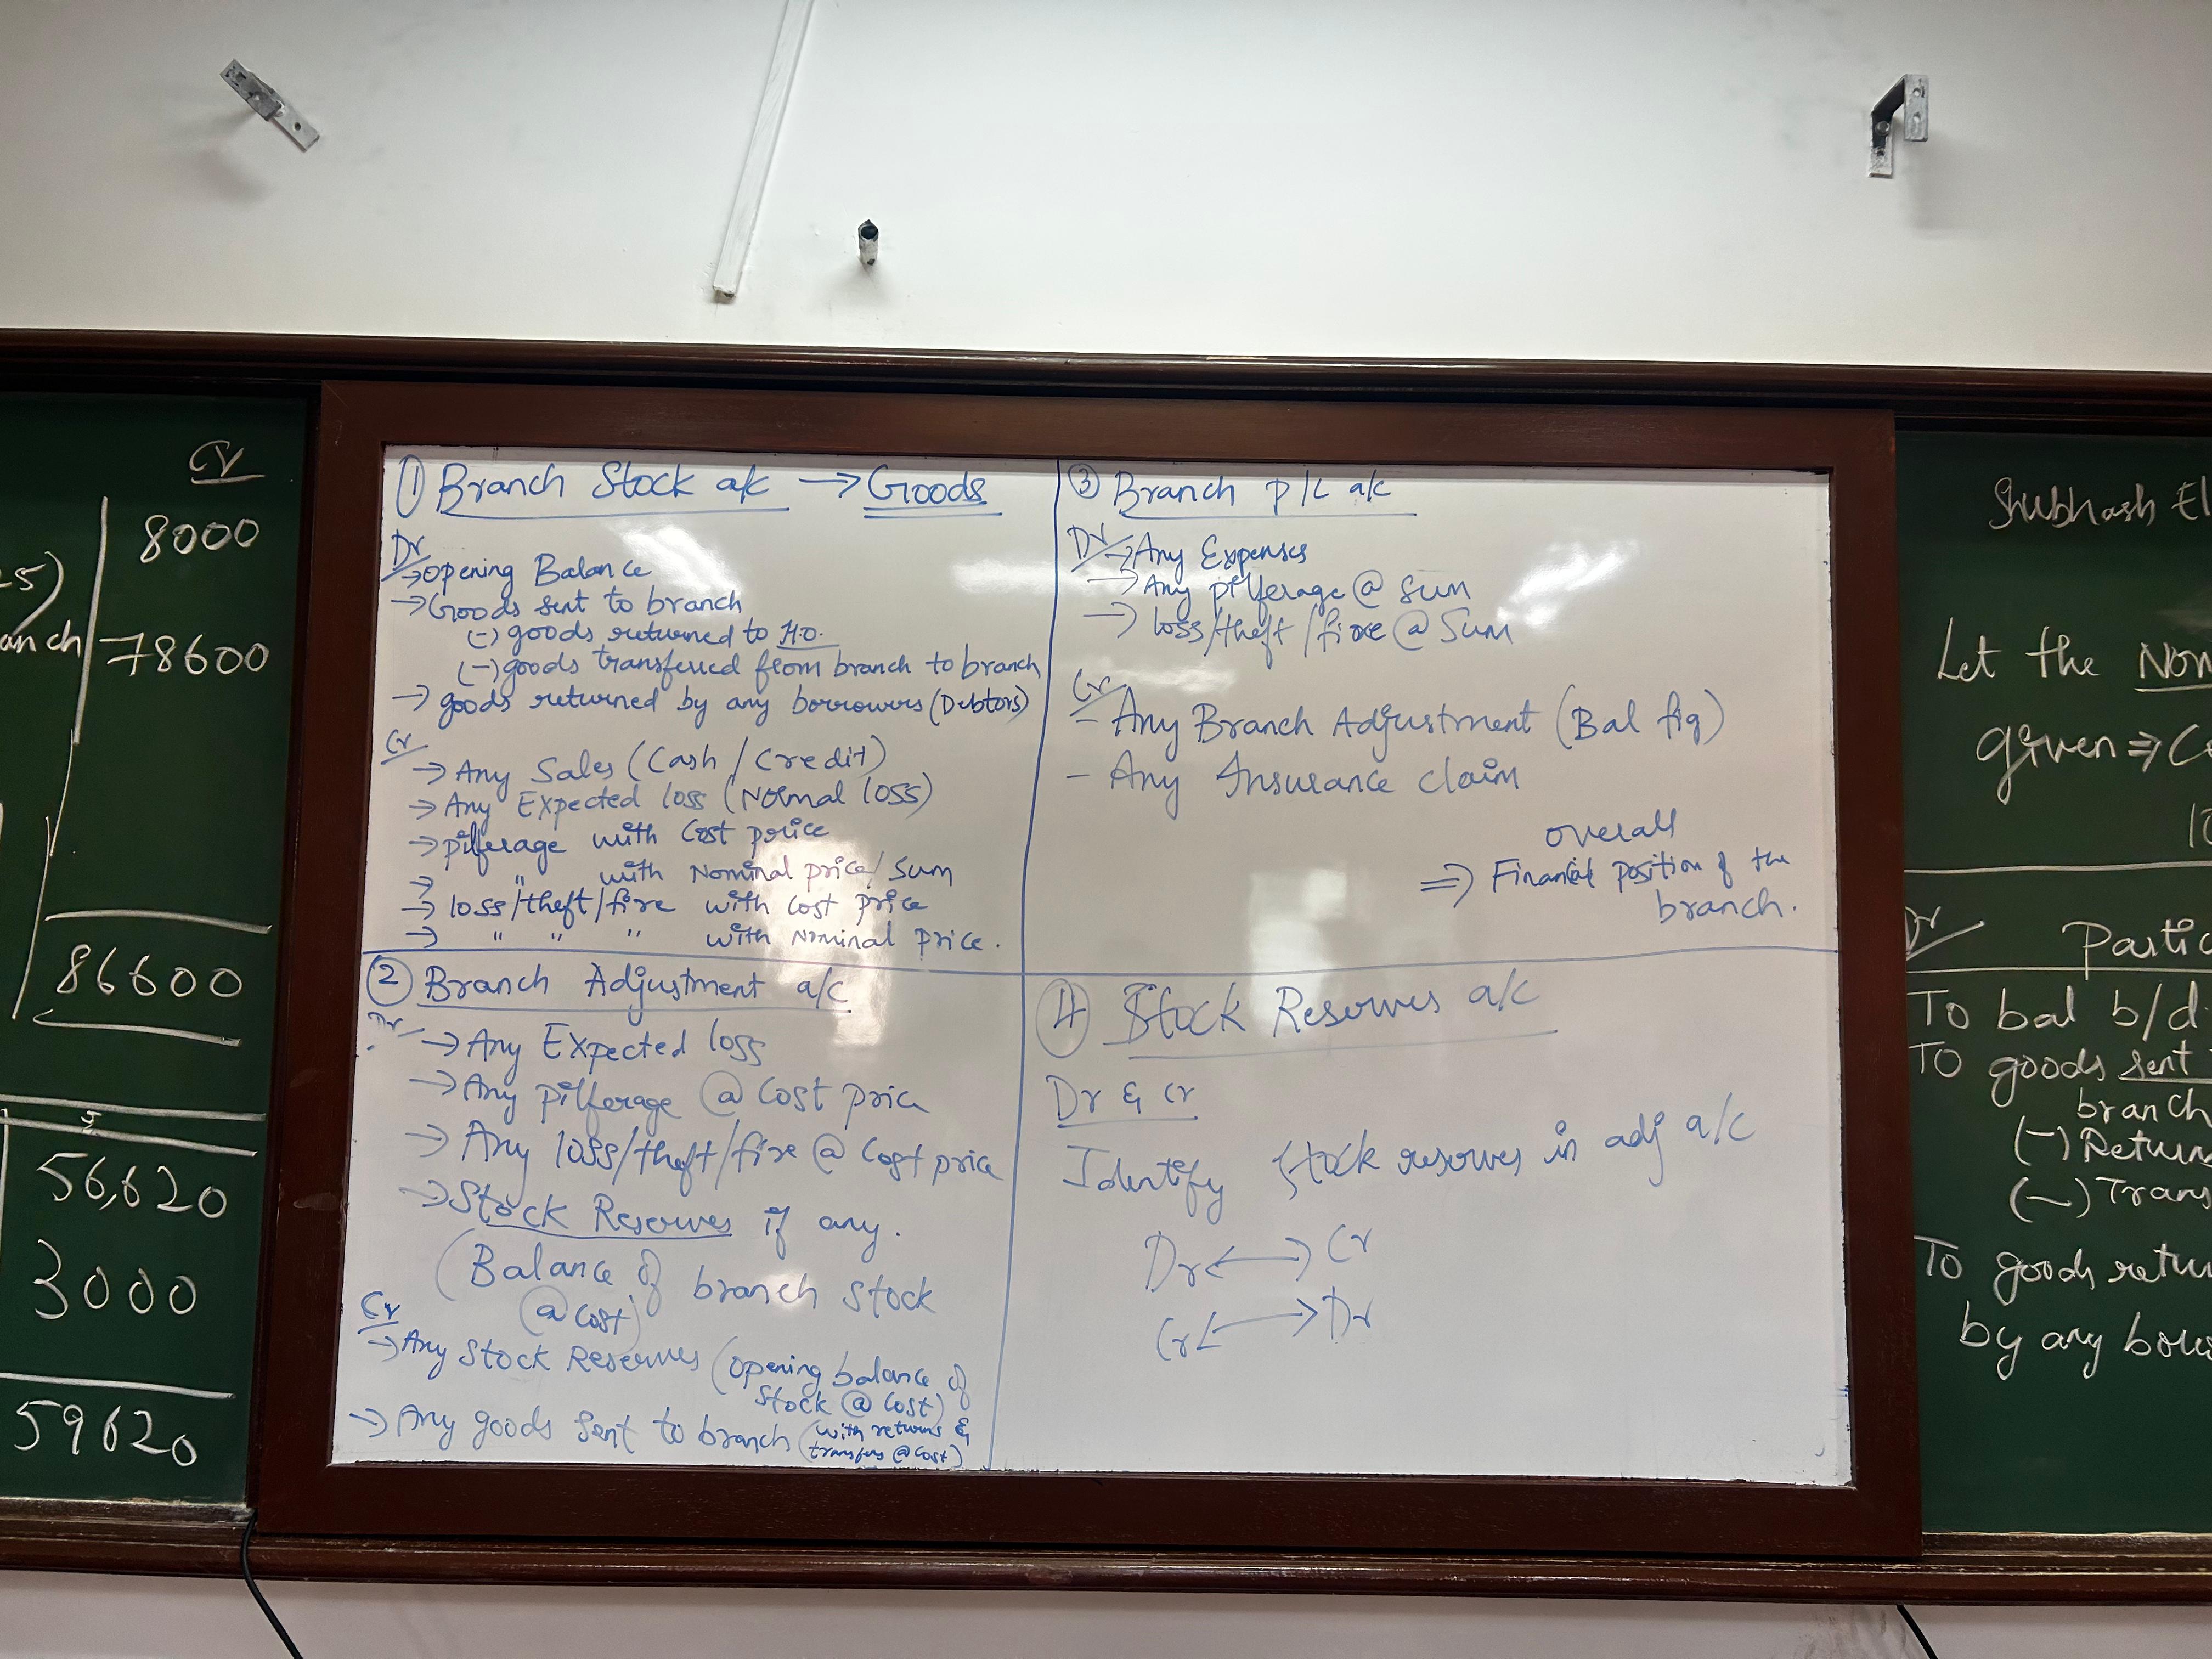 Cr
8000
25)
anch 78600
86600
56,620
3000
59620
① Branch Stock a/c → Goods
Dr
→ Opening Balance
→ Goods sent to branch
(-) goods returned to H.O.
(-) goods transferred from branch to branch
→ goods returned by any borrowers (Debtors)
Cr
→ Any Sales (Cash / Credit)
→ Any Expected loss (Normal loss)
→ pilferage with Cost price
→ " with Nominal price/ Sum
→ loss/theft/fire with Cost price
→ " " " with Nominal Price.
② Branch Adjustment a/c
Dr → Any Expected loss
→ Any pilferage @ Cost price
→ Any loss/theft/fire @ Cost price
→ Stock Reserves if any.
(Balance of branch stock
@ Cost)
Cr
→ Any Stock Reserves (opening balance of
Stock @ Cost)
→ Any goods sent to branch (with returns &
transfers @ Cost)
③ Branch P/L a/c
Dr → Any Expenses
→ Any pilferage @ Sum
→ loss/theft/fire @ Sum
Cr
- Any Branch Adjustment (Bal fig)
- Any Insurance claim
overall
⇒ Financial position of the
branch.
④ Stock Reserves a/c
Dr & Cr
Identify stock reserves in adj a/c
Dr ↔ Cr
Cr ↔ Dr
Subhash El
Let the Nom
given ⇒ Co
10
Dr Partic
To bal b/d
To goods sent
branch
(-) Return
(-) Trans
To goods retu
by any borr